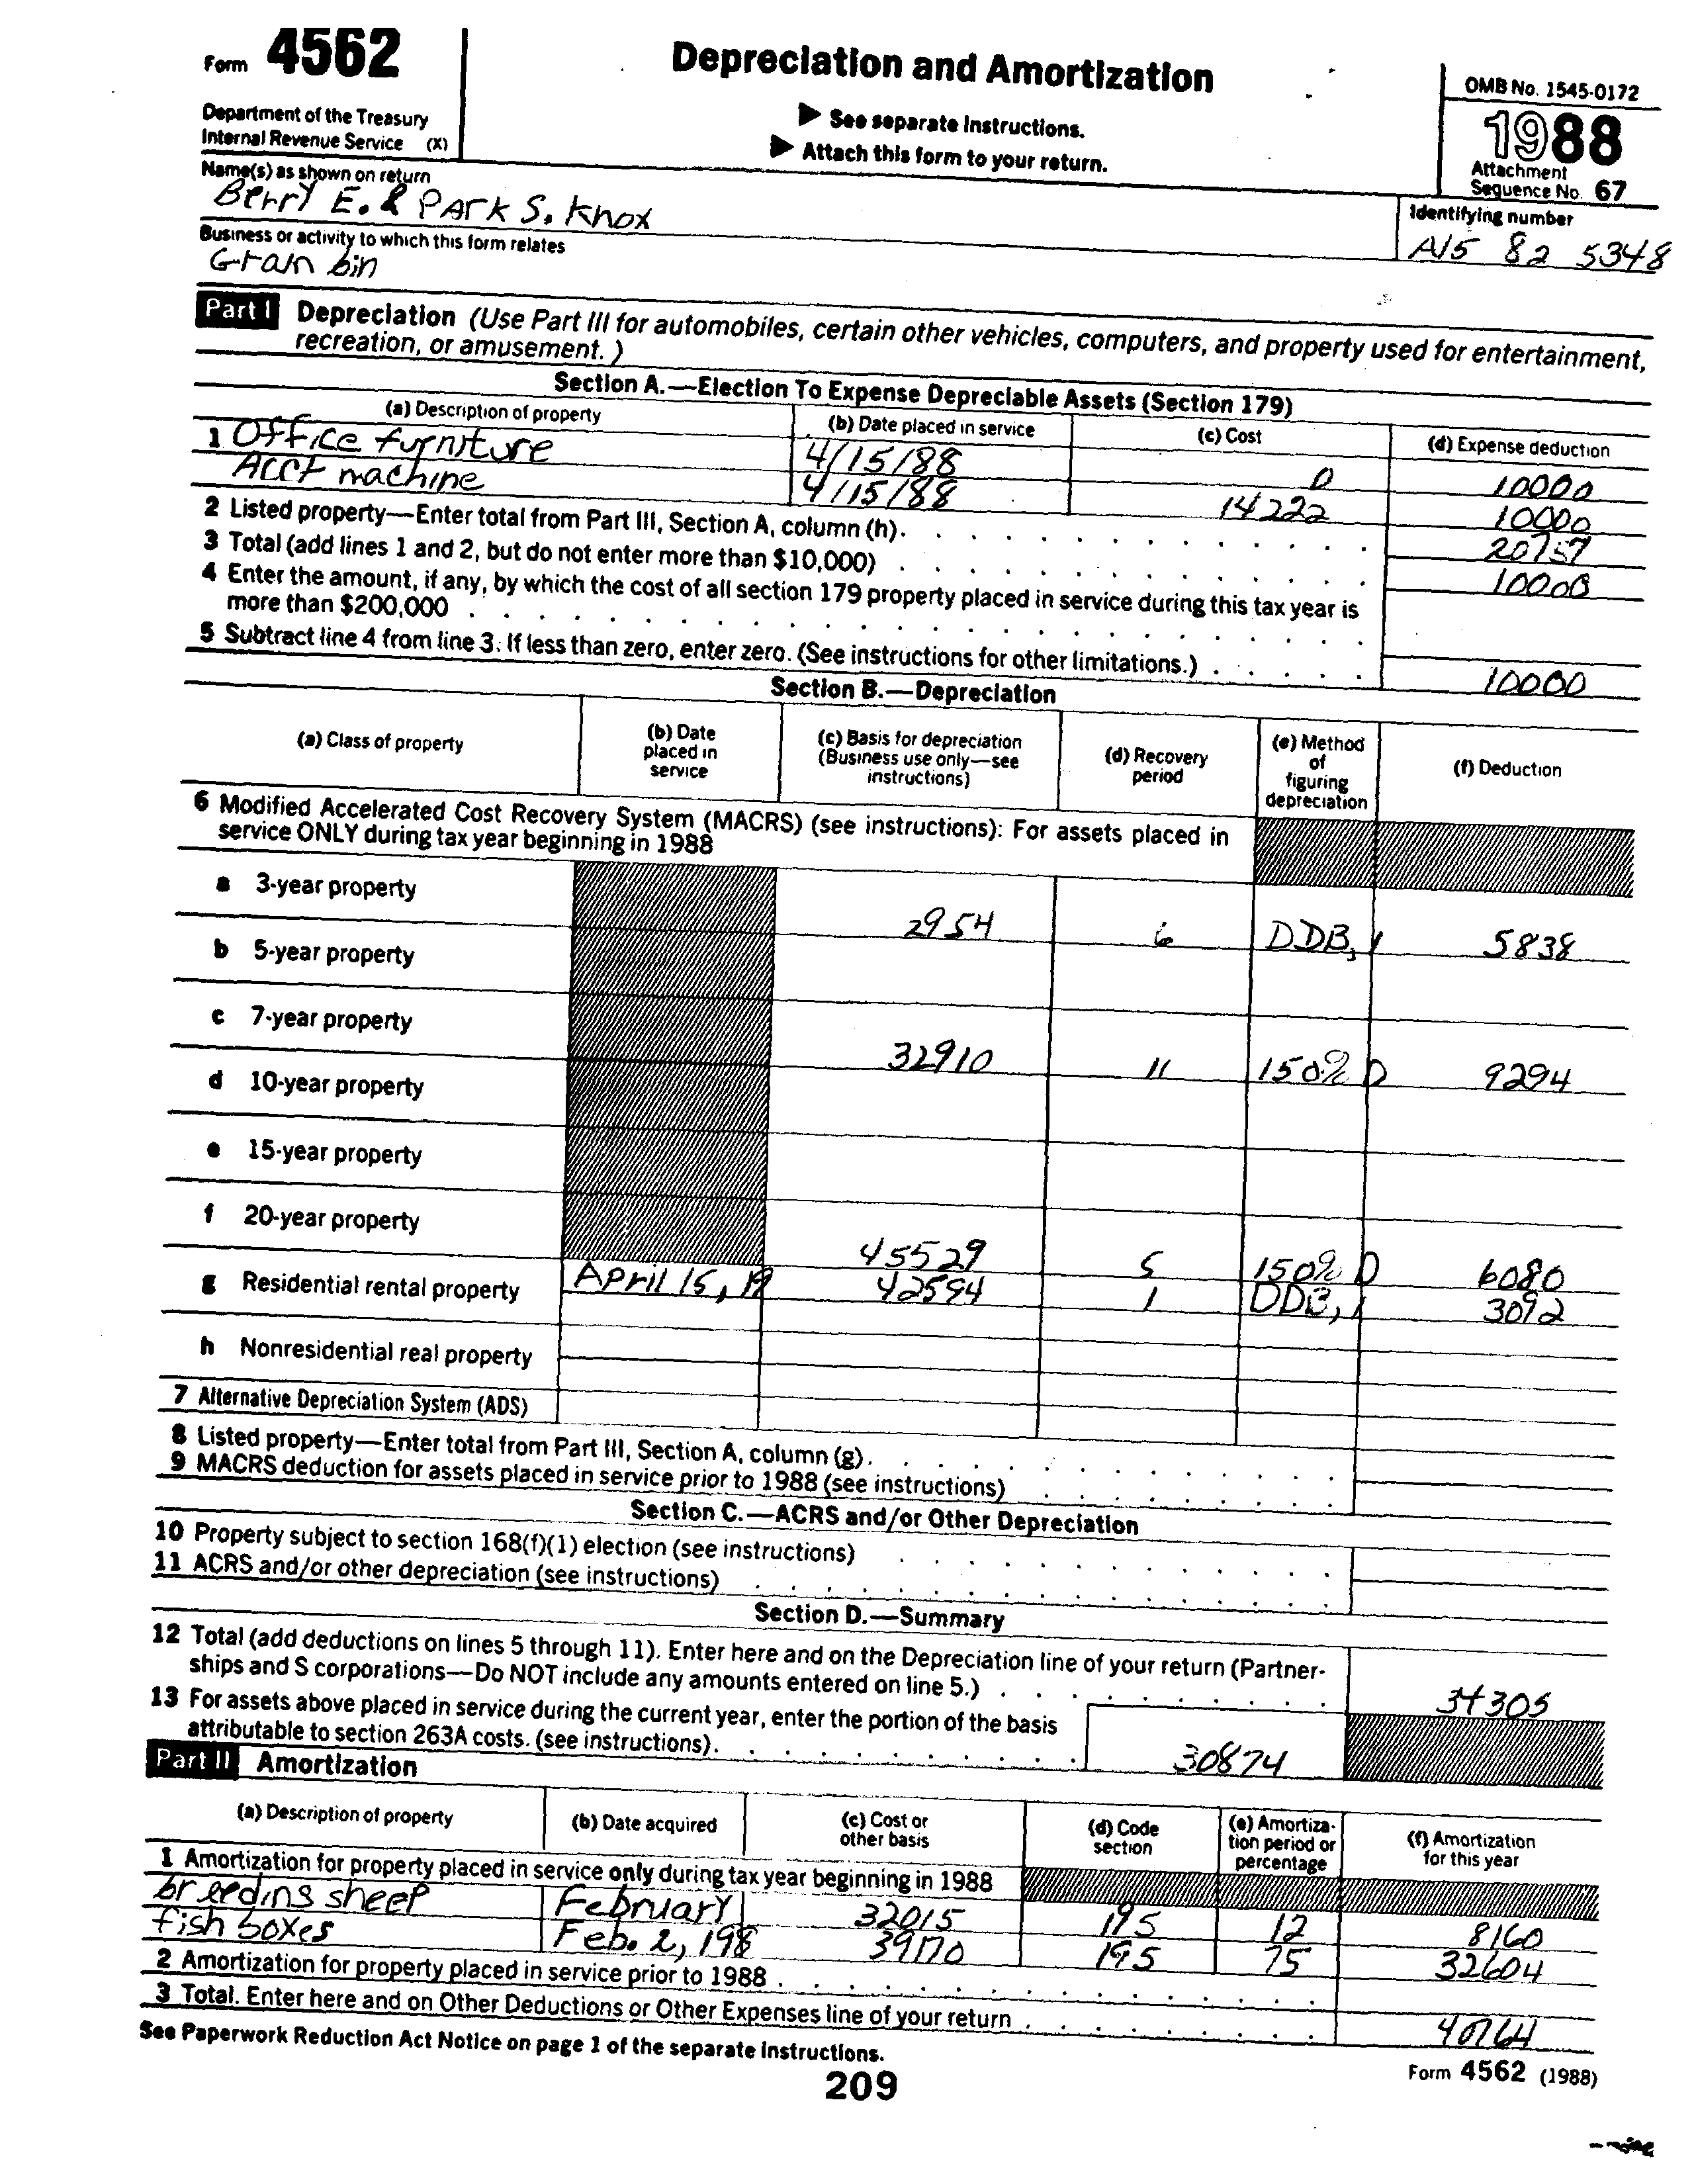 Form 4562
Depreciation and Amortization
OMB No. 1545-0172
Department of the Treasury
Internal Revenue Service (X)
▶ See separate instructions.
▶ Attach this form to your return.
1988
Attachment
Sequence No. 67
Name(s) as shown on return
Berry E. & Park S. Knox
Identifying number
A15 82 5348
Business or activity to which this form relates
Grain bin
Part I Depreciation (Use Part III for automobiles, certain other vehicles, computers, and property used for entertainment,
recreation, or amusement.)
Section A.—Election To Expense Depreciable Assets (Section 179)
(a) Description of property (b) Date placed in service (c) Cost (d) Expense deduction
1 Office furniture 4/15/88 0 10000
Acct machine 4/15/88 14222 10000
2 Listed property—Enter total from Part III, Section A, column (h). 20757
3 Total (add lines 1 and 2, but do not enter more than $10,000) 10000
4 Enter the amount, if any, by which the cost of all section 179 property placed in service during this tax year is
more than $200,000
5 Subtract line 4 from line 3. If less than zero, enter zero. (See instructions for other limitations.) 10000
Section B.—Depreciation
(a) Class of property (b) Date placed in service (c) Basis for depreciation (Business use only—see instructions) (d) Recovery period (e) Method of figuring depreciation (f) Deduction
6 Modified Accelerated Cost Recovery System (MACRS) (see instructions): For assets placed in
service ONLY during tax year beginning in 1988
a 3-year property 2954 6 DDB, 5838
b 5-year property
c 7-year property 32910 11 150% D 9294
d 10-year property
e 15-year property
f 20-year property 45529 5 150% D 6080
g Residential rental property April 15, 19 42594 1 DDB, 3092
h Nonresidential real property
7 Alternative Depreciation System (ADS)
8 Listed property—Enter total from Part III, Section A, column (g).
9 MACRS deduction for assets placed in service prior to 1988 (see instructions)
Section C.—ACRS and/or Other Depreciation
10 Property subject to section 168(f)(1) election (see instructions)
11 ACRS and/or other depreciation (see instructions)
Section D.—Summary
12 Total (add deductions on lines 5 through 11). Enter here and on the Depreciation line of your return (Partner-
ships and S corporations—Do NOT include any amounts entered on line 5.) 34305
13 For assets above placed in service during the current year, enter the portion of the basis
attributable to section 263A costs. (see instructions). 30874
Part II Amortization
(a) Description of property (b) Date acquired (c) Cost or other basis (d) Code section (e) Amortiza-tion period or percentage (f) Amortization for this year
1 Amortization for property placed in service only during tax year beginning in 1988
breeding sheep February 32015 195 12 8160
fish boxes Feb. 2, 198 39170 195 75 32604
2 Amortization for property placed in service prior to 1988
3 Total. Enter here and on Other Deductions or Other Expenses line of your return 40764
See Paperwork Reduction Act Notice on page 1 of the separate instructions.
Form 4562 (1988)
209